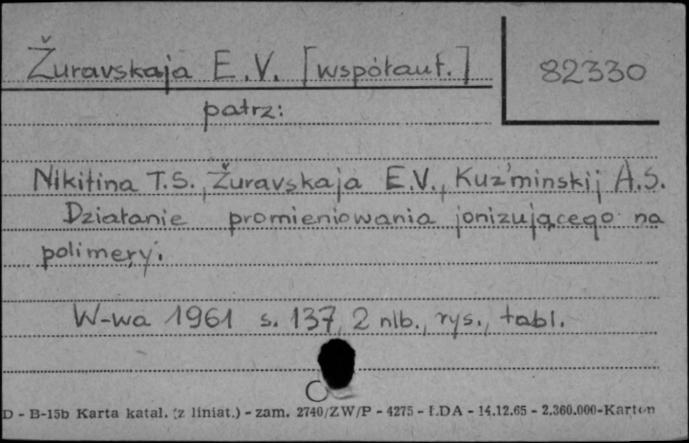 Žuravskaja E.V. [współaut.] 82330
patrz:
Nikitina T.S., Žuravskaja E.V., Kuz'minskij A.S.
Działanie promieniowania jonizującego na
polimery.
W-wa 1961 s. 137, 2 nlb., rys., tabl.
D - B-15b Karta katal. (z liniat.) - zam. 2740/ZW/P - 4275 - LDA - 14.12.65 - 2.360.000-Karton